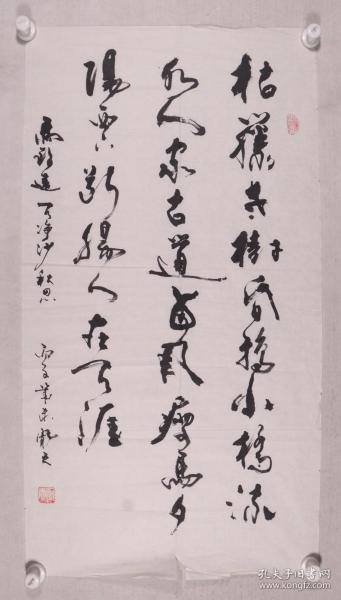 枯藤老樹昏鴉小橋流
水人家古道西風瘦馬夕
陽西下斷腸人在天涯
馬致遠天净沙秋思
孔夫子旧书网
www.kongfz.com